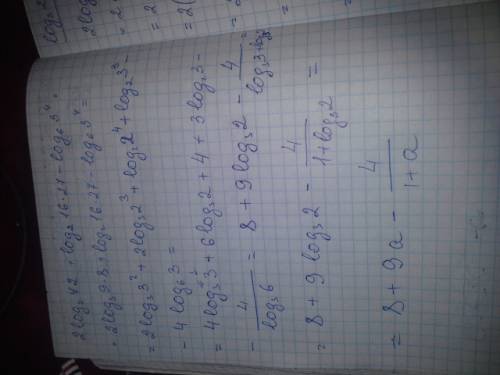 2log₃ 72 + log₂ 16·27 − log₆ 3⁴ =
= 2log₃ 9·8 + log₂ 16·27 − log₆ 3⁴ =
= 2log₃ 3² + 2log₃ 2³ + log₂ 2⁴ + log₂ 3³ −
− 4 log₆ 3 =
= 4log₃ 3 + 6log₃ 2 + 4 + 3log₂ 3 −
− 4/log₃ 6 = 8 + 9log₃ 2 − 4/(log₃ 3 + log₃ =
= 8 + 9 log₃ 2 − 4/(1 + log₃ 2) =
= 8 + 9a − 4/(1 + a)